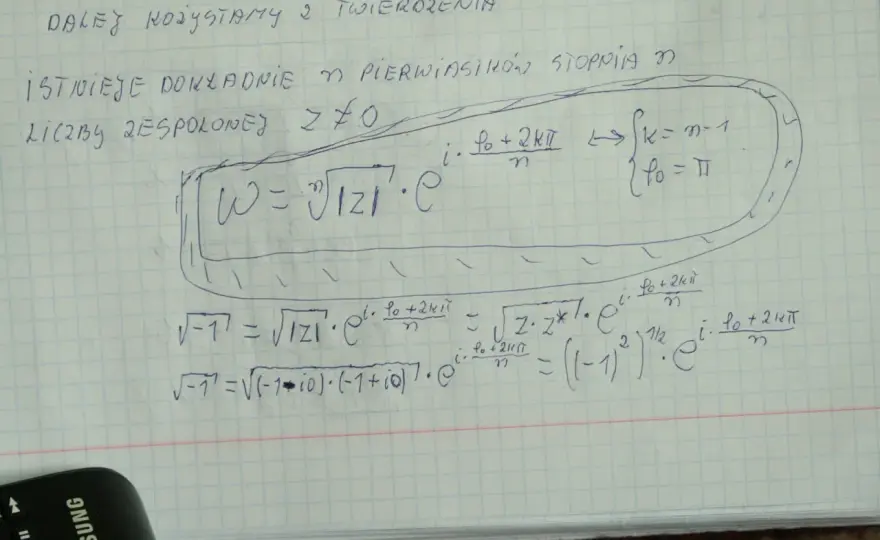 DALEJ KOŻYSTAMY Z TWIERDZENIA
ISTNIEJE DOKŁADNIE n PIERWIASTKÓW STOPNIA n
LICZBY ZESPOLONEJ z ≠ 0
w = ⁿ√|z| · e^(i · (φ₀ + 2kπ)/n) ↔ { k = n-1
φ₀ = π
√-1 = √|z| · e^(i · (φ₀ + 2kπ)/n) = √(z · z*) · e^(i · (φ₀ + 2kπ)/n)
√-1 = √((-1-i0) · (-1+i0)) · e^(i · (φ₀ + 2kπ)/n) = ((-1)²)^(1/2) · e^(i · (φ₀ + 2kπ)/n)
SUNG